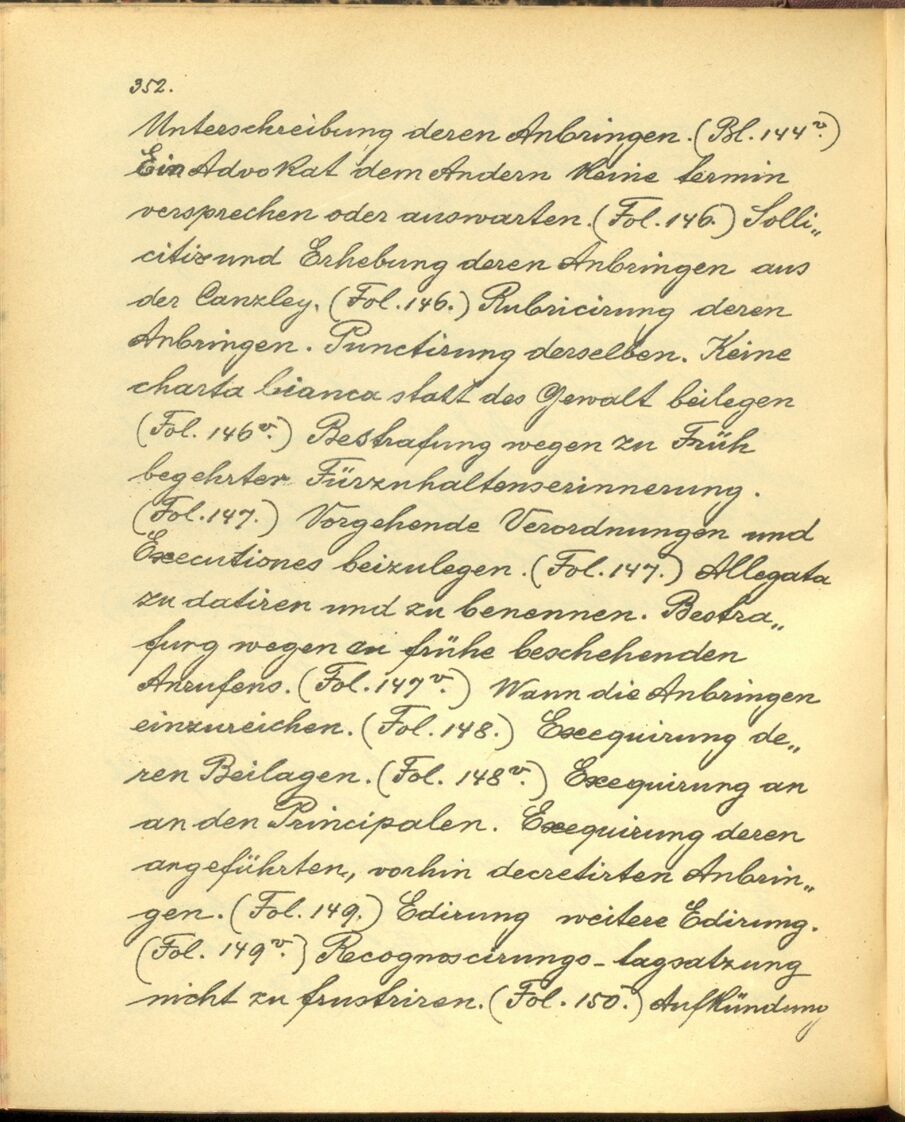 352.
Unterschreibung deren Anbringen. (Bl. 144v.)
Ein Advokat dem Andern keine termin
versprechen oder auswarten. (Fol. 146.) Solli„
citir und Erhebung deren Anbringen aus
der Canzley. (Fol. 146.) Rubricirung deren
Anbringen. Punctirung derselben. Keine
charta bianca statt des Gewalt beilegen
(Fol. 146v.) Bestrafung wegen zu Früh
begehrter Fürzuhaltenserinnerung.
(Fol. 147.) Vorgehende Verordnungen und
Executiones beizulegen. (Fol. 147.) Allegata
zu datiren und zu benennen. Bestra„
fung wegen zu frühe beschehenden
Anrufens. (Fol. 147v.) Wann die Anbringen
einzureichen. (Fol. 148.) Exequirung de„
ren Beilagen. (Fol. 148v.) Exequirung an
an den Principalen. Exequirung deren
angeführten, vorhin decretirten Anbrin„
gen. (Fol. 149.) Edirung weitere Edirung.
(Fol. 149v.) Recognoscirungs-tagsatzung
nicht zu frustriren. (Fol. 150.) Aufkündung